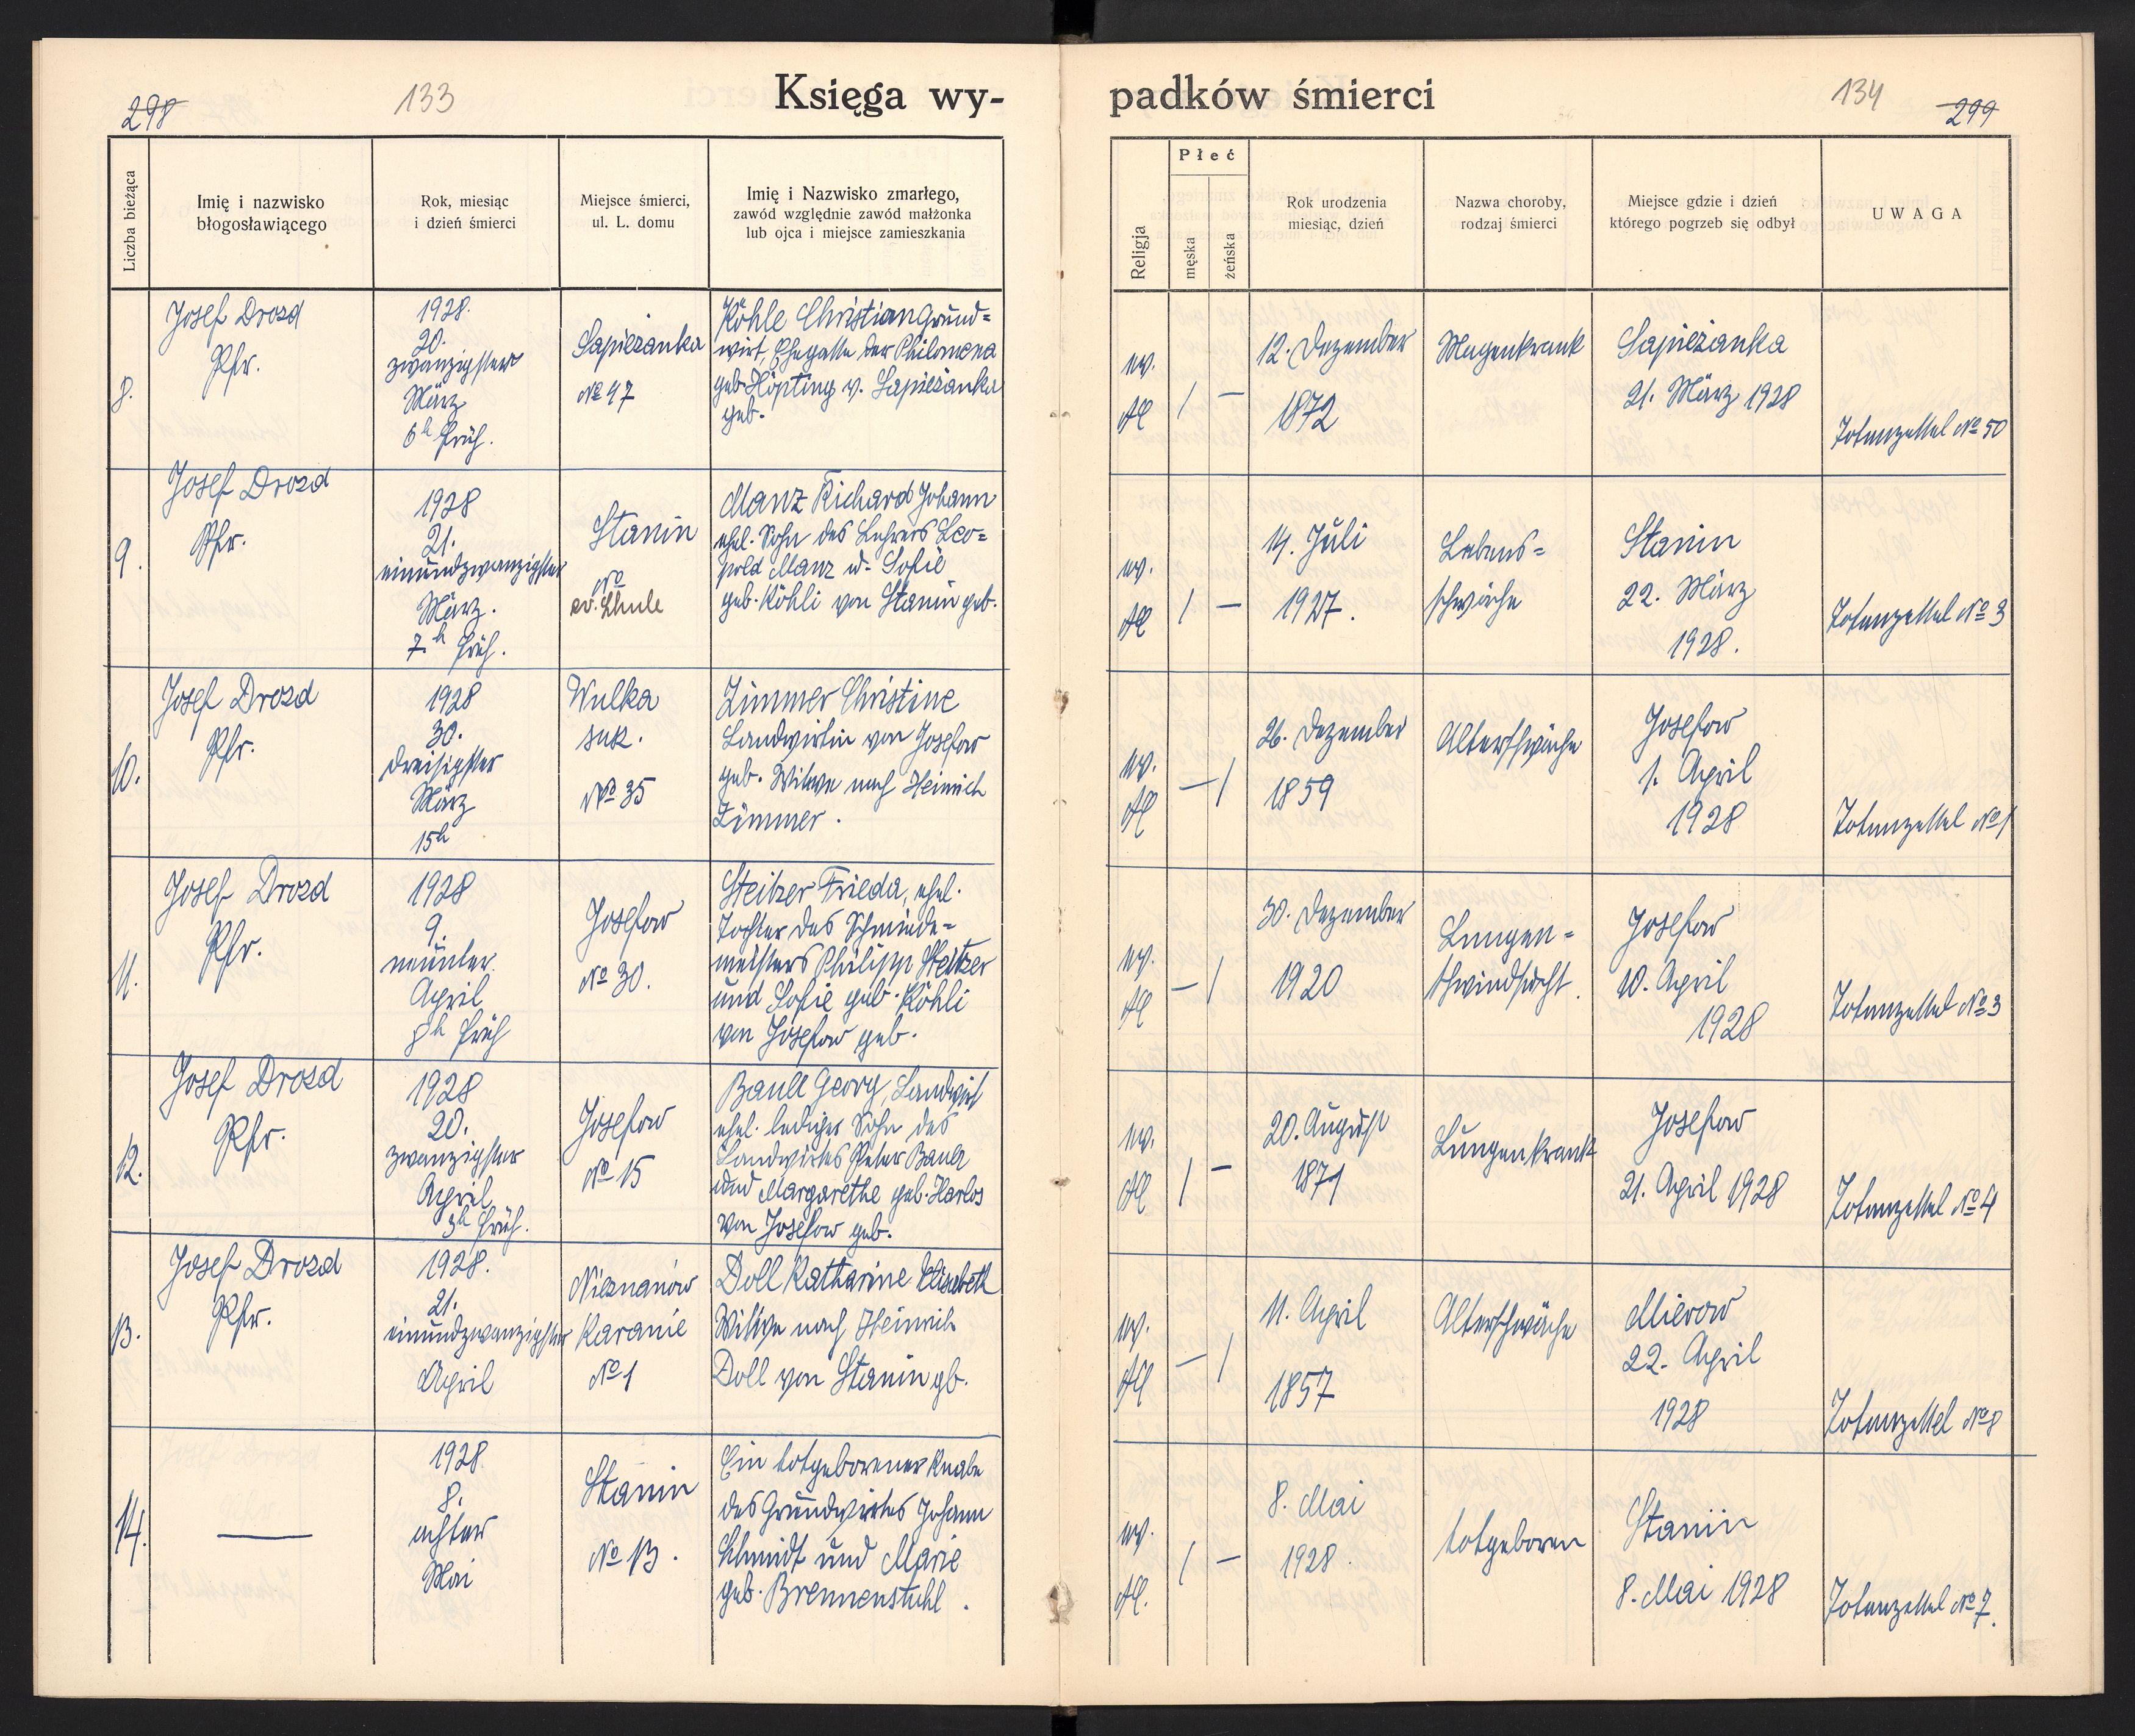 298
133
Księga wy-
Liczba bieżąca
Imię i nazwisko
błogosławiącego
Rok, miesiąc
i dzień śmierci
Miejsce śmierci,
ul. L. domu
Imię i Nazwisko zmarłego,
zawód względnie zawód małżonka
lub ojca i miejsce zamieszkania
8.
Josef Drozd
Pfr.
1928.
20.
zwanzigster
März
6h früh.
Sapieżanka
No 47
Köhle Christian Grund=
wirt, Ehegatte der Philomena
geb. Höpting v. Sapieżanka
geb.
9.
Josef Drozd
Pfr.
1928
21.
einundzwanzigster
März.
7.h früh.
Stanin
No
ev. Schule
Manz Richard Johann
ehel. Sohn des Lehrers Leo=
pold Manz u. Sofie
geb. Köhli von Stanin geb.
10.
Josef Drozd
Pfr.
1928
30.
dreisigster
März
15h
Wulka
suk.
No 35
Zimmer Christine
Landwirtin von Josefow
geb. Witwe nach Heinrich
Zimmer.
11.
Josef Drozd
Pfr.
1928
9.
neunter
April
8h früh
Josefow
No 30.
Steitzer Frieda, ehel.
Tochter des Schmiede=
meisters Philipp Steitzer
und Sofie geb. Köhli
von Josefow geb.
12.
Josef Drozd
Pfr.
1928
20.
zwanzigster
April
3h früh.
Josefow
No 15
Georg, Landwirt
ehel. lediger Sohn des
Landwirtes Peter
und Margarethe geb. Harlos
von Josefow geb.
13.
Josef Drozd
Pfr.
1928.
21.
einundzwanzigster
April
Nieznanów
Karanie
No 1
Doll Katharine Elisabeth
Witwe nach Heinrich
Doll von Stanin gb.
14.
—
1928.
8.
achter
Mai
Stanin
No 13.
Ein totgeborener Knabe
des Grundwirtes Johann
Schmidt und Marie
geb. Brennenstuhl.
padków śmierci
134
299
Religja
Płeć
męska
żeńska
Rok urodzenia
miesiąc, dzień
Nazwa choroby,
rodzaj śmierci
Miejsce gdzie i dzień
którego pogrzeb się odbył
UWAGA
ev.
/ —
12. Dezember
1872
Magenkrank
Sapieżanka
21. März 1928
Totenzettel No 50
ev.
/ —
14. Juli
1927.
Lebens=
schwäche
Stanin
22. März
1928.
Totenzettel No 3
ev.
— /
26. Dezember
1859
Altersschwäche
Josefow
1. April
1928
Totenzettel No 1
ev.
— /
30. Dezember
1920
Lungen=
schwindsucht.
Josefow
10. April
1928
Totenzettel No 3
ev.
/ —
20. August
1871
Lungenkrank
Josefow
21. April 1928
Totenzettel No 4
ev.
— /
11. April
1857
Altersschwäche
Mierow
22. April
1928
Totenzettel No 8
ev.
/ —
8. Mai
1928.
totgeboren
Stanin
8. Mai 1928
Totenzettel No 7.